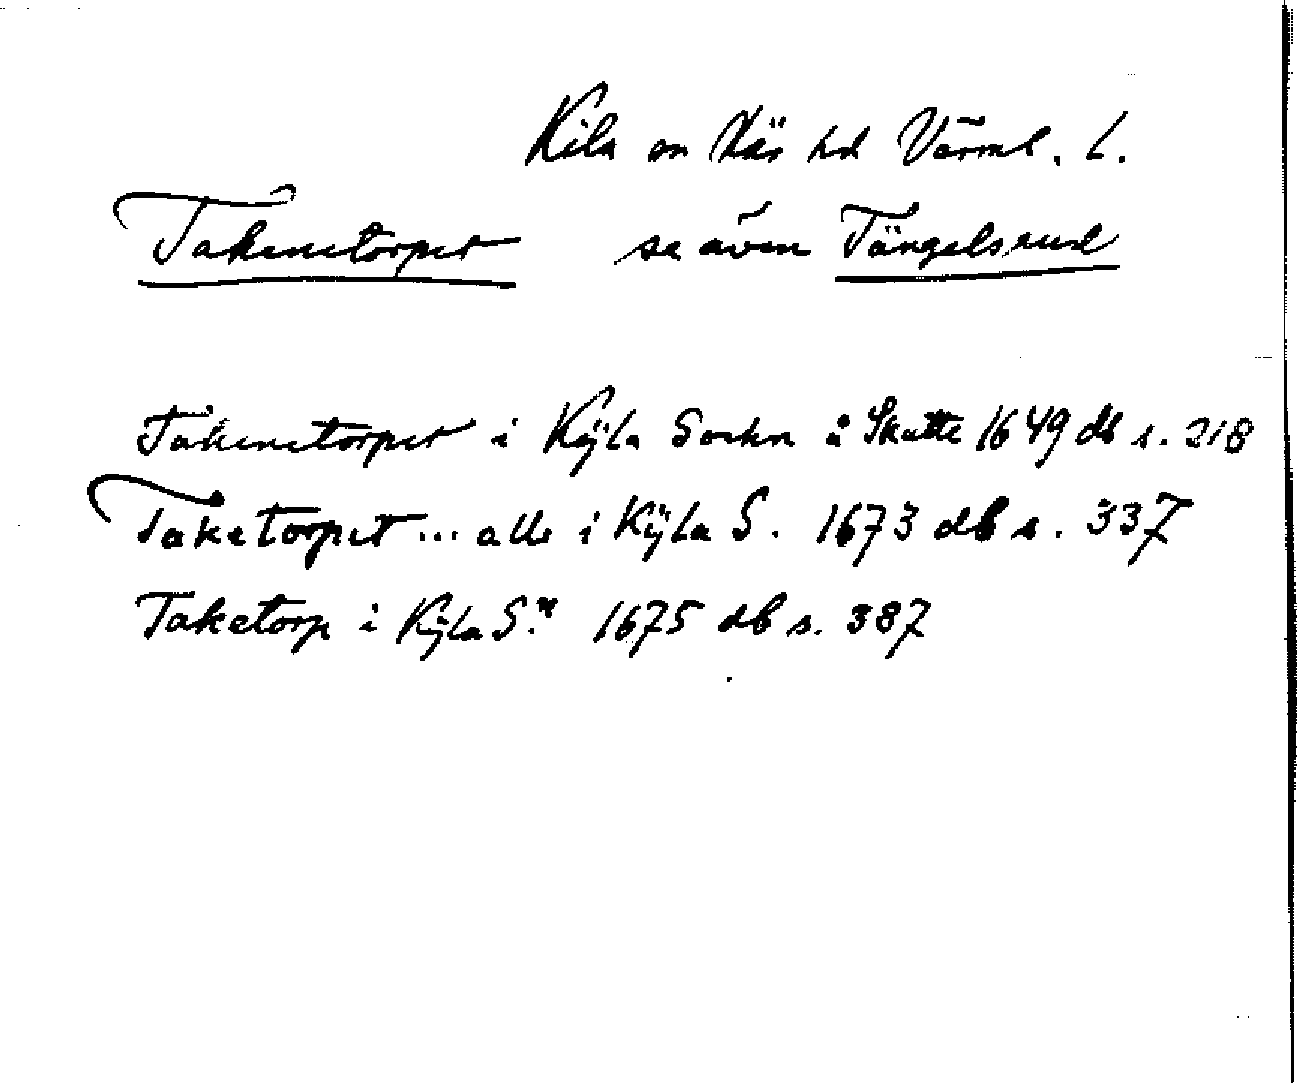 Kila sn Näs hd Värml. L.
Takenetorpet se även Tängelsrud
Takenetorpet i Kÿla Sockn å Skatte 1649 db s. 218
Taketorpet ... alle i Kÿla S. 1673 db s. 337
Taketorp i Kÿla S.n 1675 db s. 387